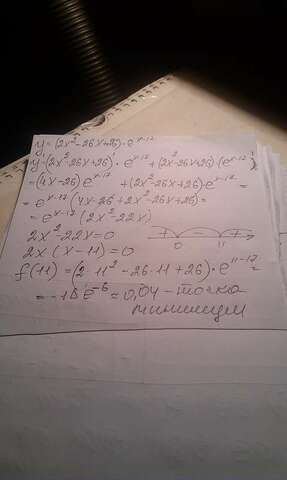 y = (2x²-26x+26)·e^(x-12)
y' = (2x²-26x+26)'·e^(x-12) + (2x²-26x+26)·(e^(x-12))'
= (4x-26)e^(x-12) + (2x²-26x+26)e^(x-12) =
= e^(x-12)(4x-26+2x²-26x+26) =
= e^(x-12)(2x²-22x)
2x²-22x=0
+ - +
0 11
2x(x-11)=0
f(11) = (2·11²-26·11+26)·e^(11-12) =
≈ 0,04 - точка